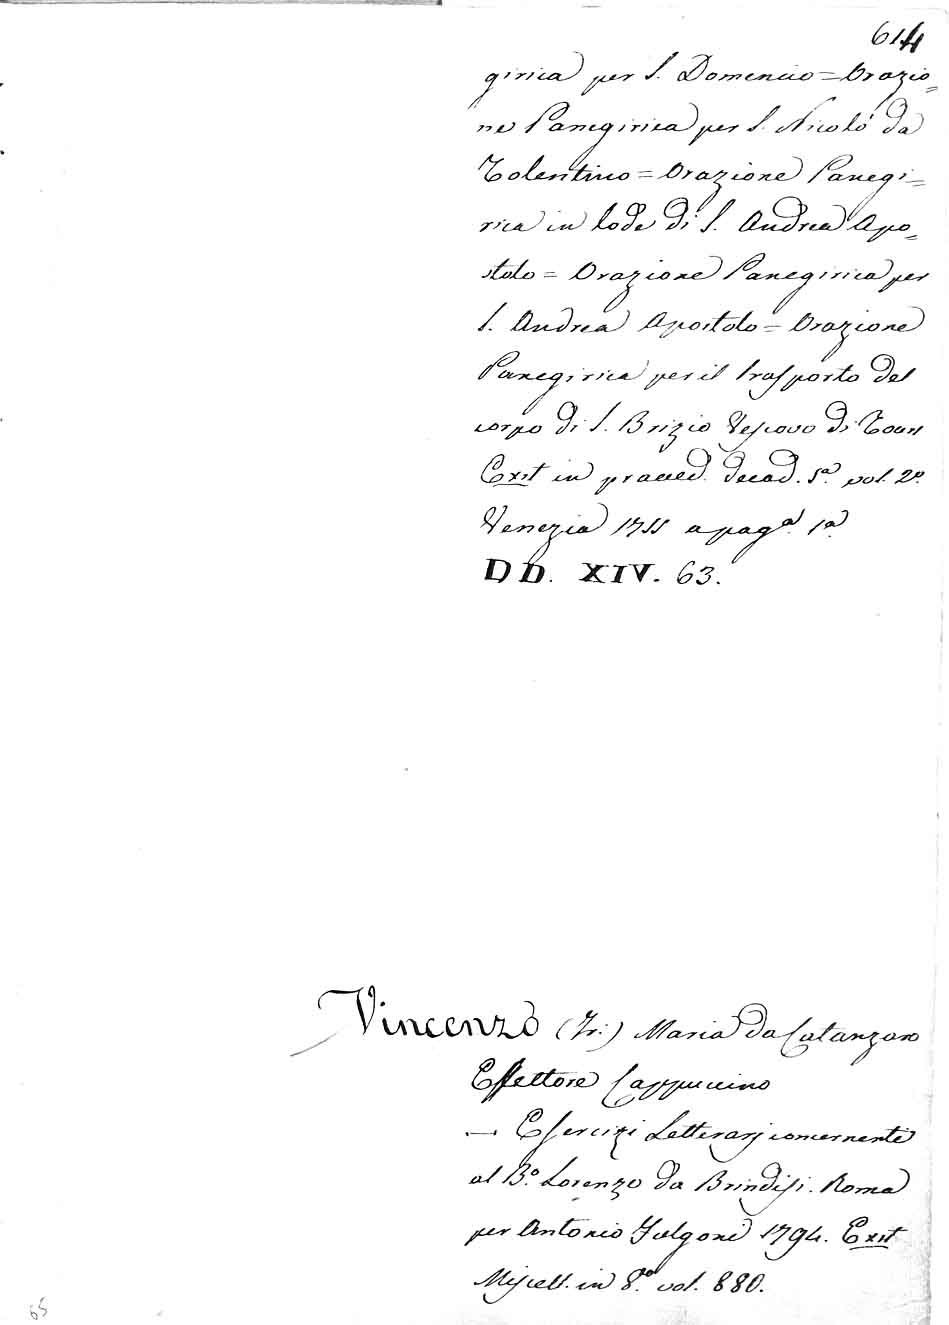 614
girica per S. Domenico = Orazio=
ne Panegirica per S. Nicoló da
Tolentino = Orazione Panegi=
rica in lode di S. Andrea Apo=
stolo = Orazione Panegirica per
S. Andrea Apostolo = Orazione
Panegirica per il trasporto del
corpo di S. Brizio Vescovo di Tours
Exit in praeced. decad. 5ª. vol. 2º.
Venezia 1755 a pagª. 1ª.
DD. XIV. 63.
Vincenzo (Fr:) Maria da Catanzaro
Eslettore Cappuccino
— Esercizi Letterarj concernenti
al Bº. Lorenzo da Brindisi. Roma
per Antonio Fulgoni 1794. Exit
Miscell. in 8.vo vol. 880.
65